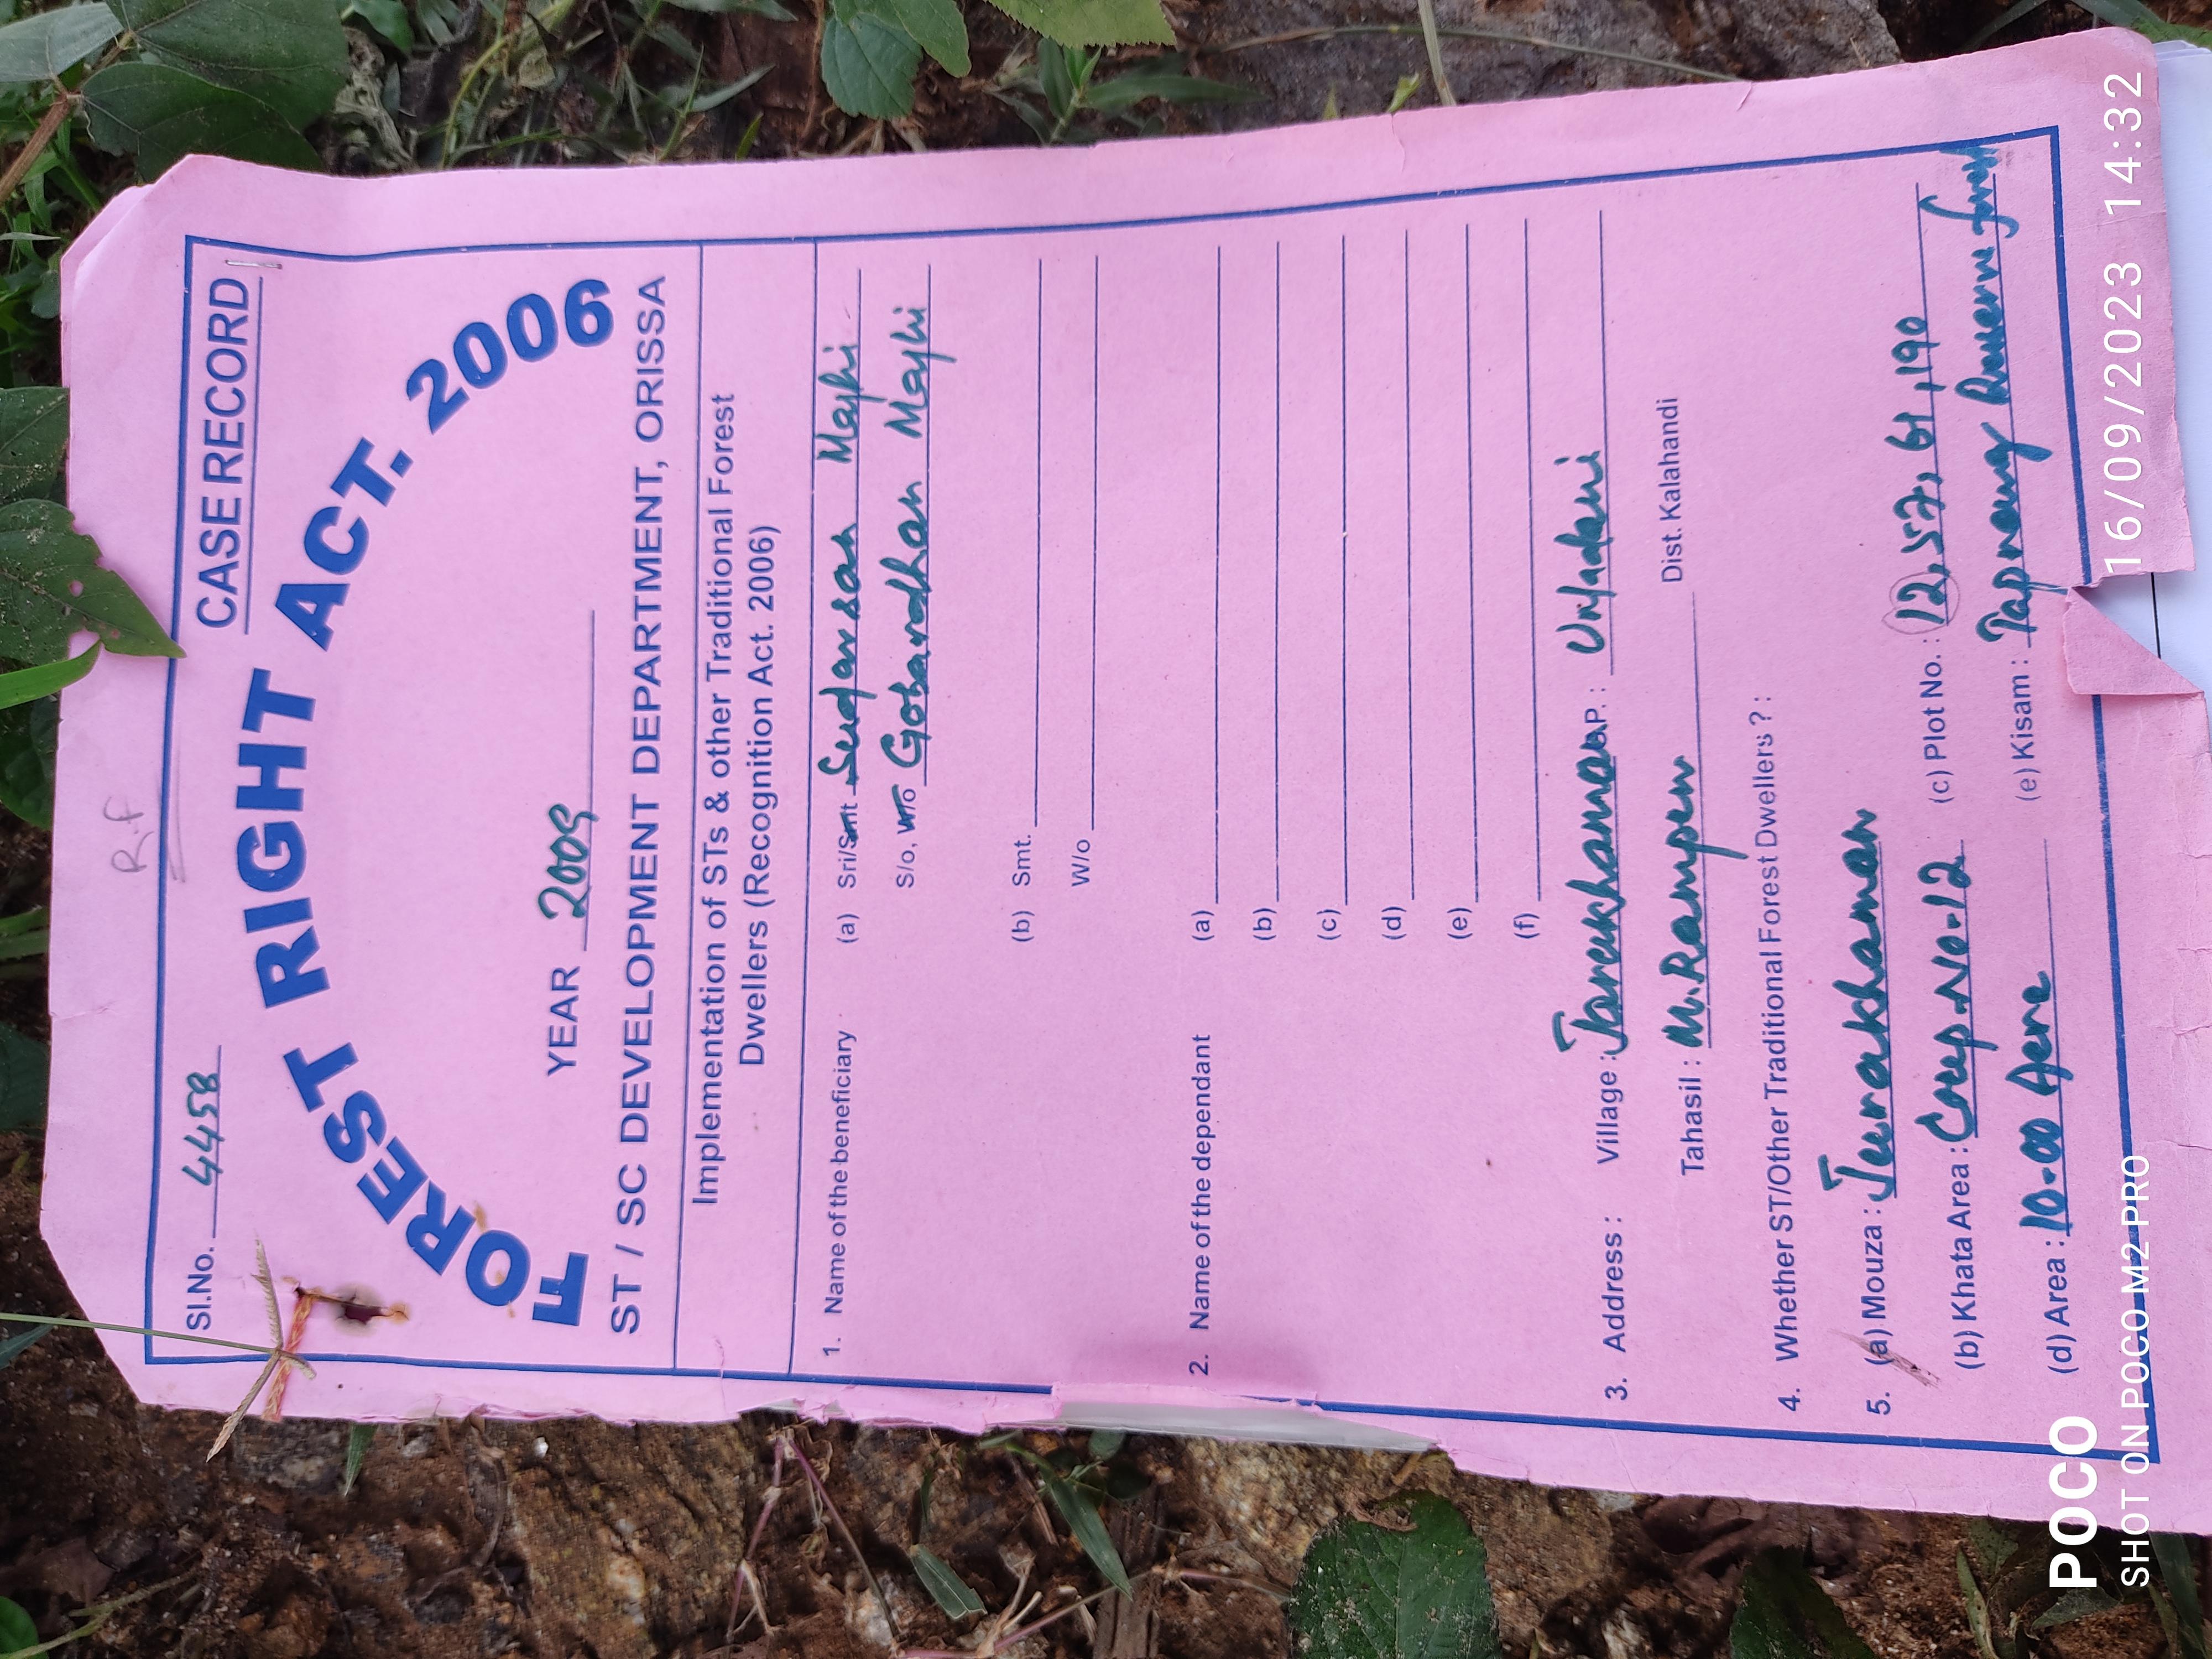 R.f
Sl.No. 4458 CASE RECORD
FOREST RIGHT ACT. 2006
YEAR 2009
ST / SC DEVELOPMENT DEPARTMENT, ORISSA
Implementation of STs & other Traditional Forest
Dwellers (Recognition Act. 2006)
1. Name of the beneficiary (a) Sri/Smt Sudarsan Majhi
S/o, W/o Gobardhan Majhi
(b) Smt.
W/o
2. Name of the dependant (a)
(b)
(c)
(d)
(e)
(f)
3. Address : Village : G.P. :
Tahasil : M.Rampur Dist. Kalahandi
4. Whether ST/Other Traditional Forest Dwellers ? :
5. (a) Mouza : Jerrakhaman
(b) Khata Area : Comp.No-12 (c) Plot No. : 12, 57, 61, 190
(d) Area : 10.00 Acre (e) Kisam : Reserve forest
POCO
SHOT ON POCO M2 PRO
16/09/2023 14:32